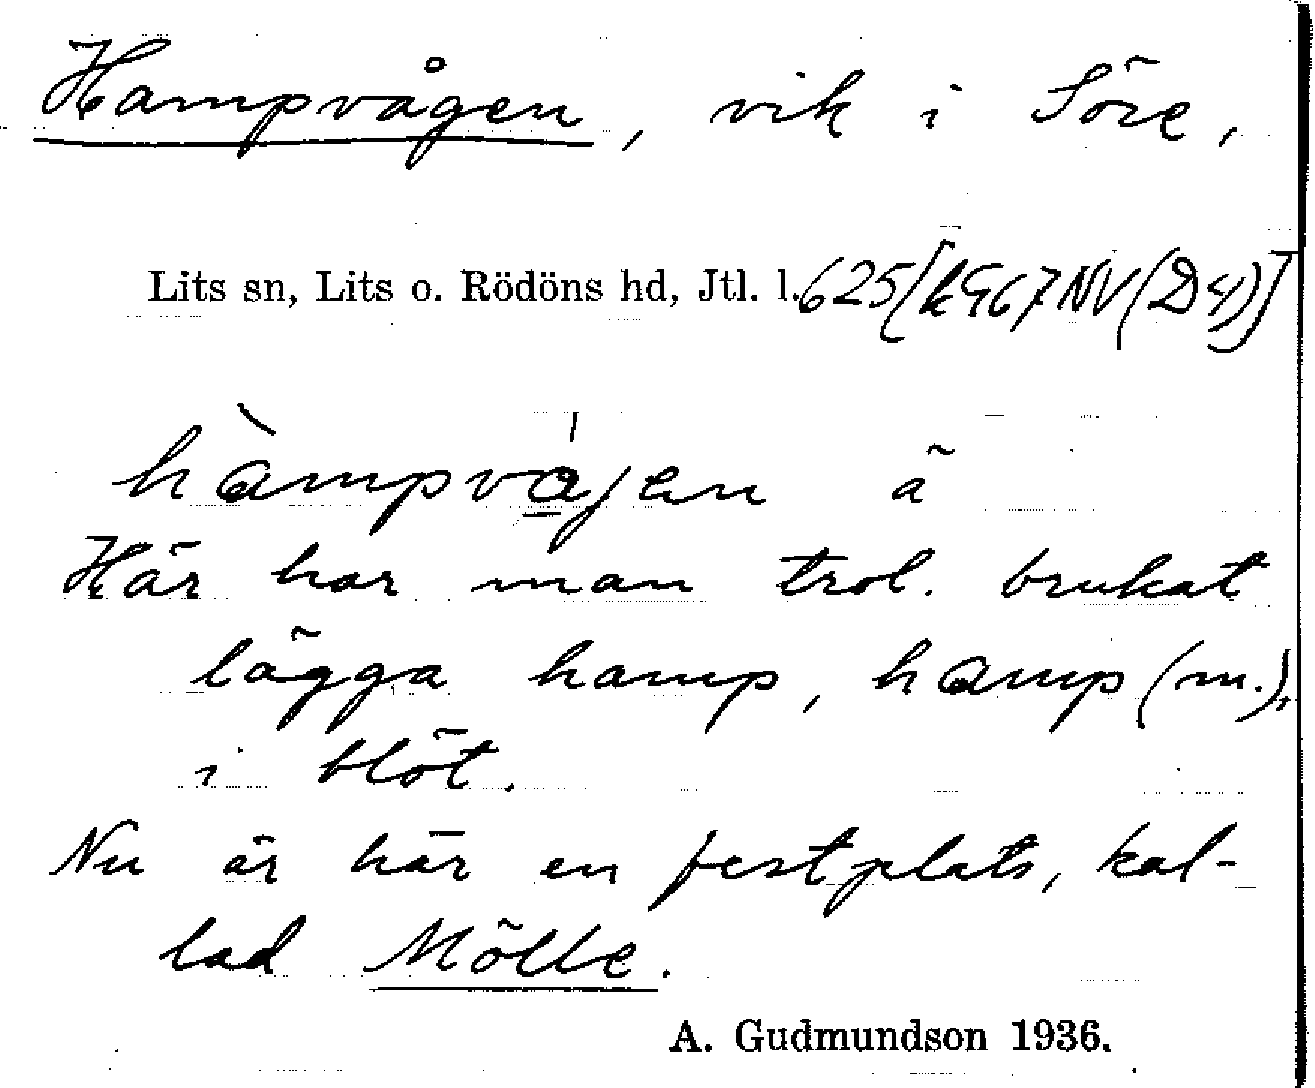 Hampvågen, vik i Söre,
Lits sn, Lits o. Rödöns hd, Jtl. l. 625 [kG67NV(D4)]
hàmpvájen ä
Här har man trol. brukat
lägga hamp, hamp (m.),
i blöt.
Nu är här en festplats, kal-
lad Mölle.
A. Gudmundson 1936.